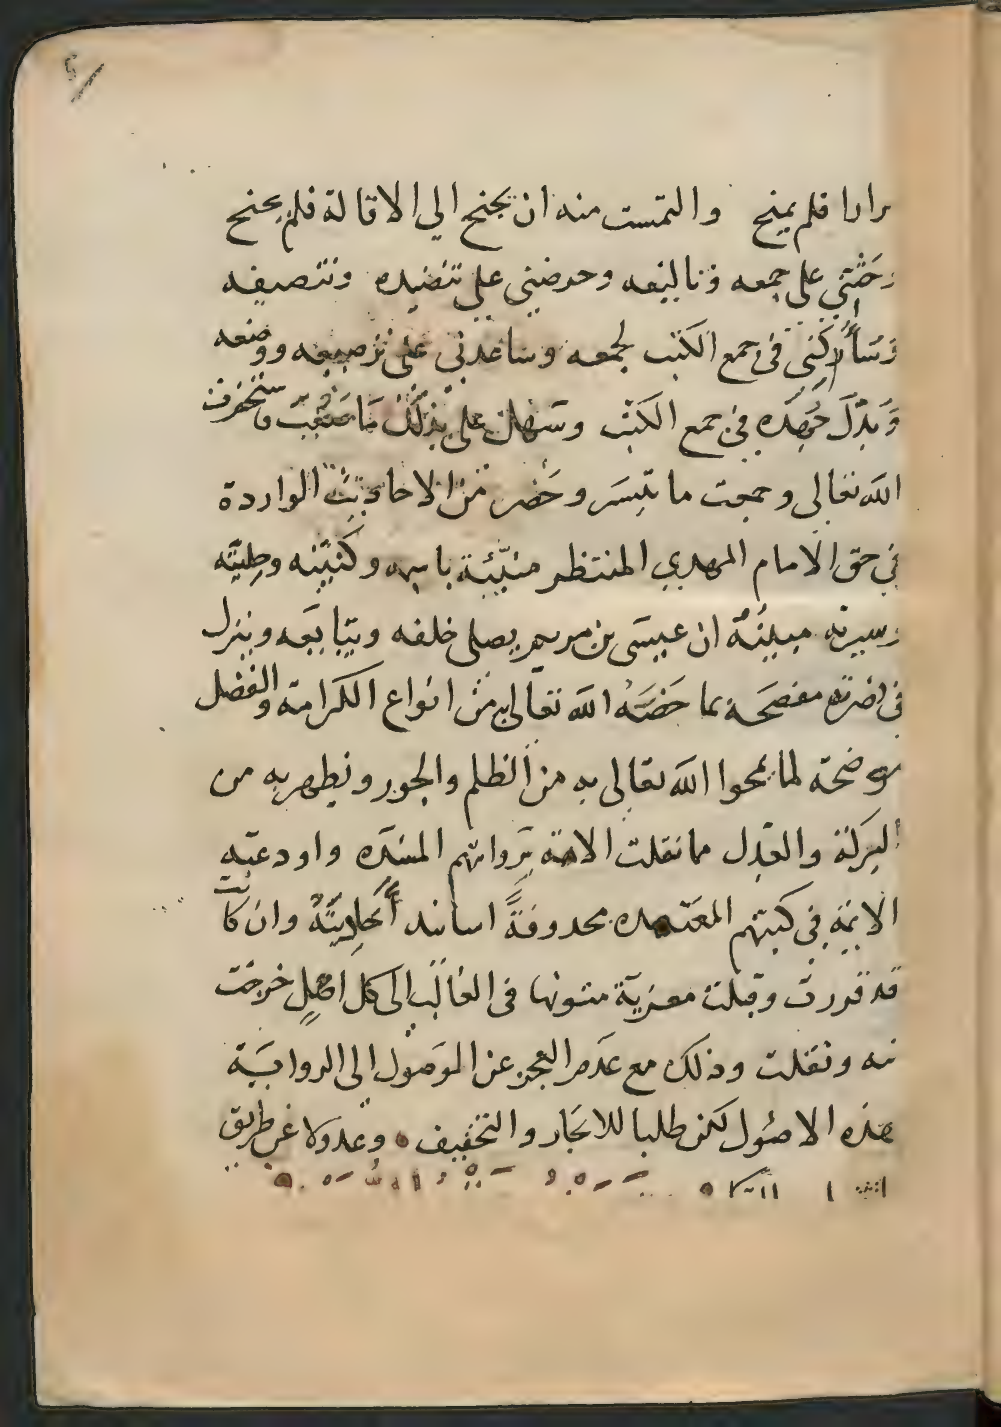 مرارا فلم يمنح والتمست منه ان يجنح الي الاقالة فلم يجنح
وحثني على جمعه وتاليفه وحرضني على تنضيده وتصنيفه
في جمع الكتب لجمعه وساعدني على ترصيعه ووضعه
وبذل جهده في جمع الكتب وسهل على بذلك ما صعب فاستخرت
الله تعالى وجمعت ما تيسر وحضر من الاحاديث الواردة
في حق الامام المهدي المنتظر منبئة باسمه وكنيته وحليته
وسيرته مبينة ان عيسى بن مريم يصلى خلفه ويتابعه وينزل
في نصرته مفصحة بما خصه الله تعالى به من انواع الكرامة والفضل
موضحة لما يمحوا الله تعالى به من الظلم والجور ويظهر به من
البركة والعدل مما نقلت الامة برواتهم المسنده واودعته
الائمة في كتبهم المعتمده محدوفة اسانيد أحاديثه وان كانت
قد قررت وقبلت معزية متونها فى الغالب الى كل اصل خرجت
منه ونقلت وذلك مع عدم العجز عن الموصول الى الرواية
هذه الاصول لكن طلبا للايجار والتخفيف وعدولا عن طريق